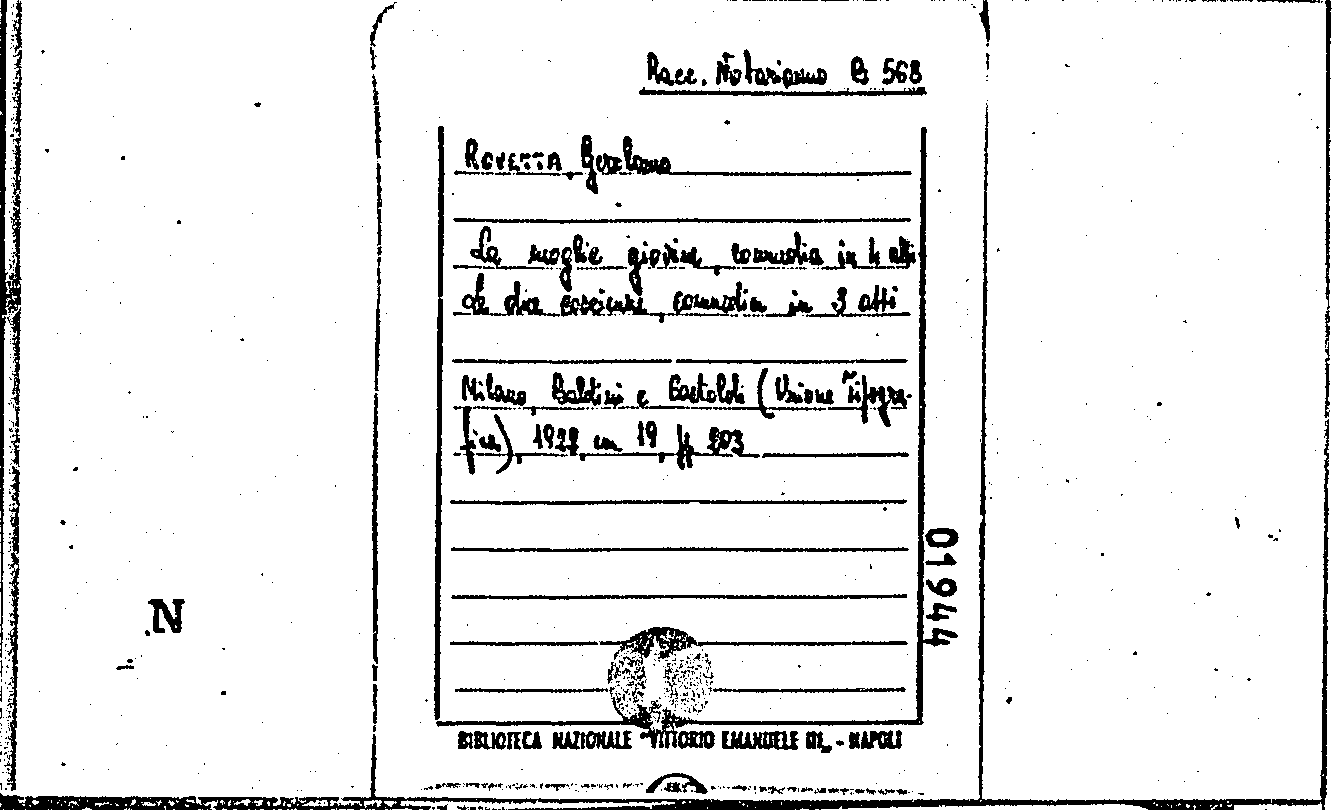 Racc. Notarianno B 568
ROVETTA, Gerolamo
La moglie giovine, commedia in 4 atti
Le due coscienze, commedia in 3 atti
Milano, Baldini e Castoldi (Unione Tipogra-
fica), 1927, cm 19, pp 203
01944
N
BIBLIOTECA NAZIONALE "VITTORIO EMANUELE III„ - NAPOLI